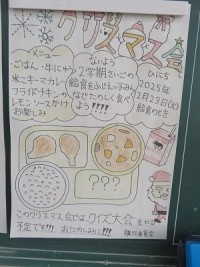 クリスマス会
メニュー
ごはん・牛にゅう
米こキーマカレー
フライドチキン
レモンソースかけ
お楽しみ
ないよう
2学期さいごの
給食を
みんなでたのしく食べ
よう!!!!
ひにち
2025年
12月23日(火)
給食のとき
???
このクリスマス会では、クイズ大会をやる
予定です!!! おたのしみに!!!